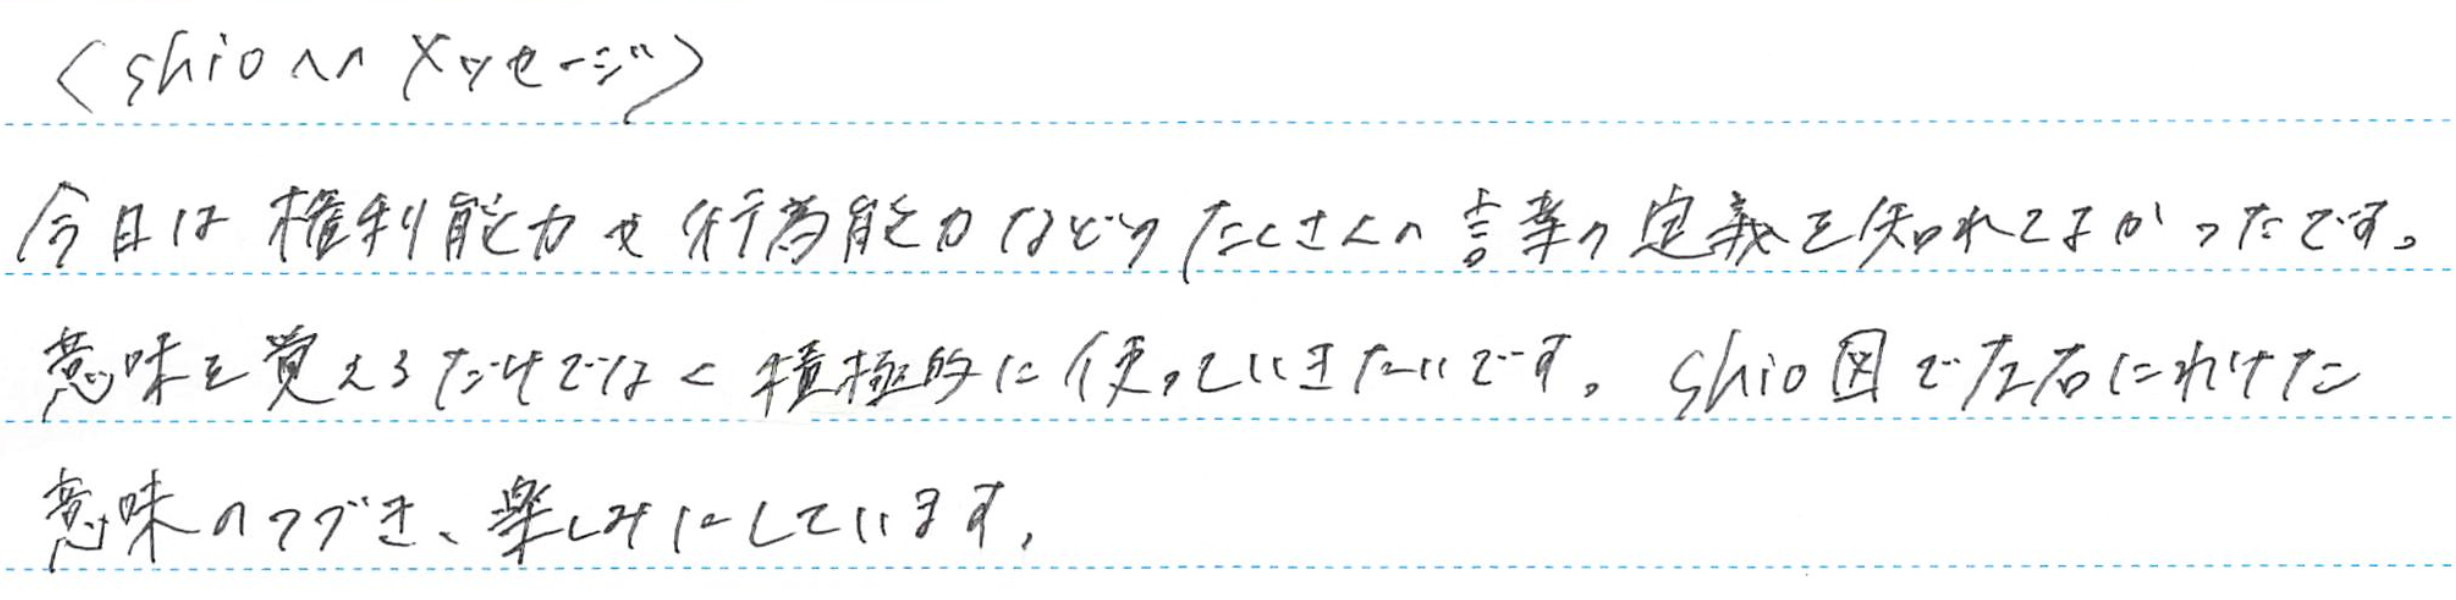 〈shioへのメッセージ〉
今日は権利能力や行為能力などのたくさんの言葉の定義を知れてよかったです。
意味を覚えるだけではなく積極的に使っていきたいです。shio図で左右にわけた
意味のつづき、楽しみにしています。